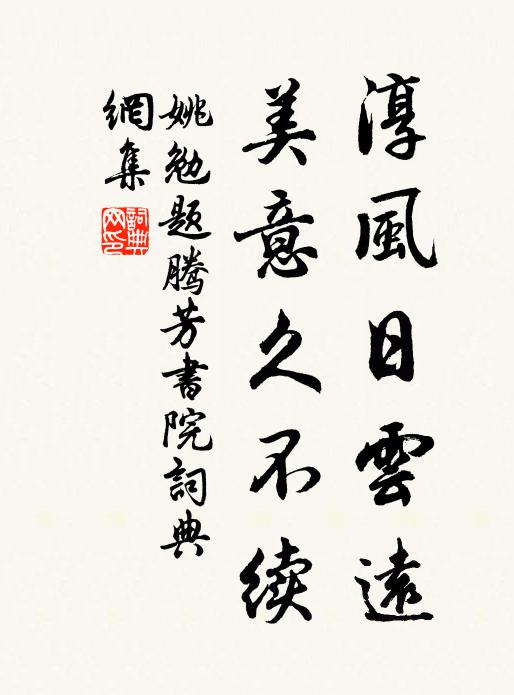 淳風日雲遠
美意久不续
姚勉题腾芳書院詞典
網集
詞典网印